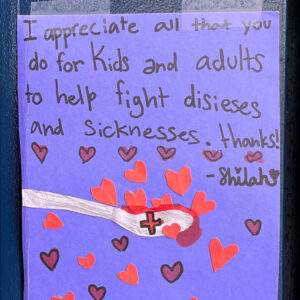 I appreciate all that you
do for Kids and adults
to help fight disieses
and sicknesses. thanks!
- Shilah